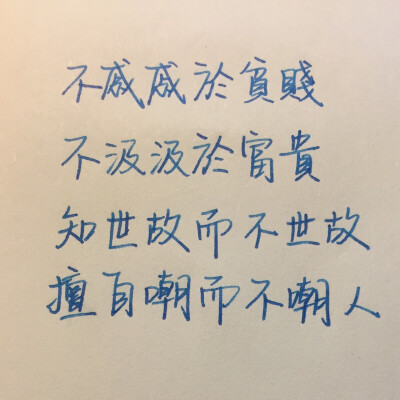 不慼慼於貧賤
不汲汲於富貴
知世故而不世故
擅自嘲而不嘲人